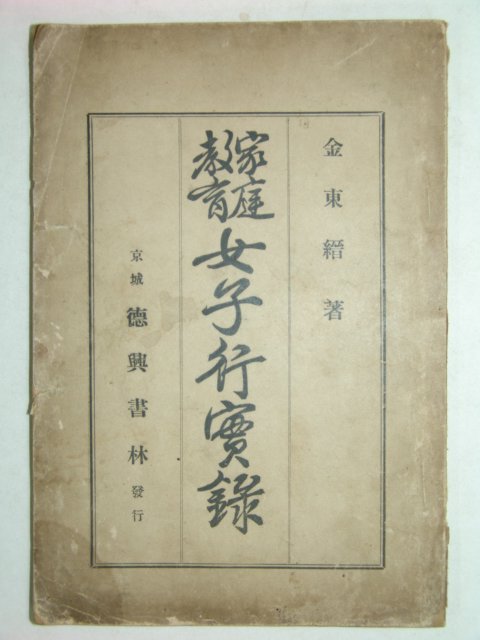 金東縉著
家庭
教育
女子行實錄
京城 德興書林 發行